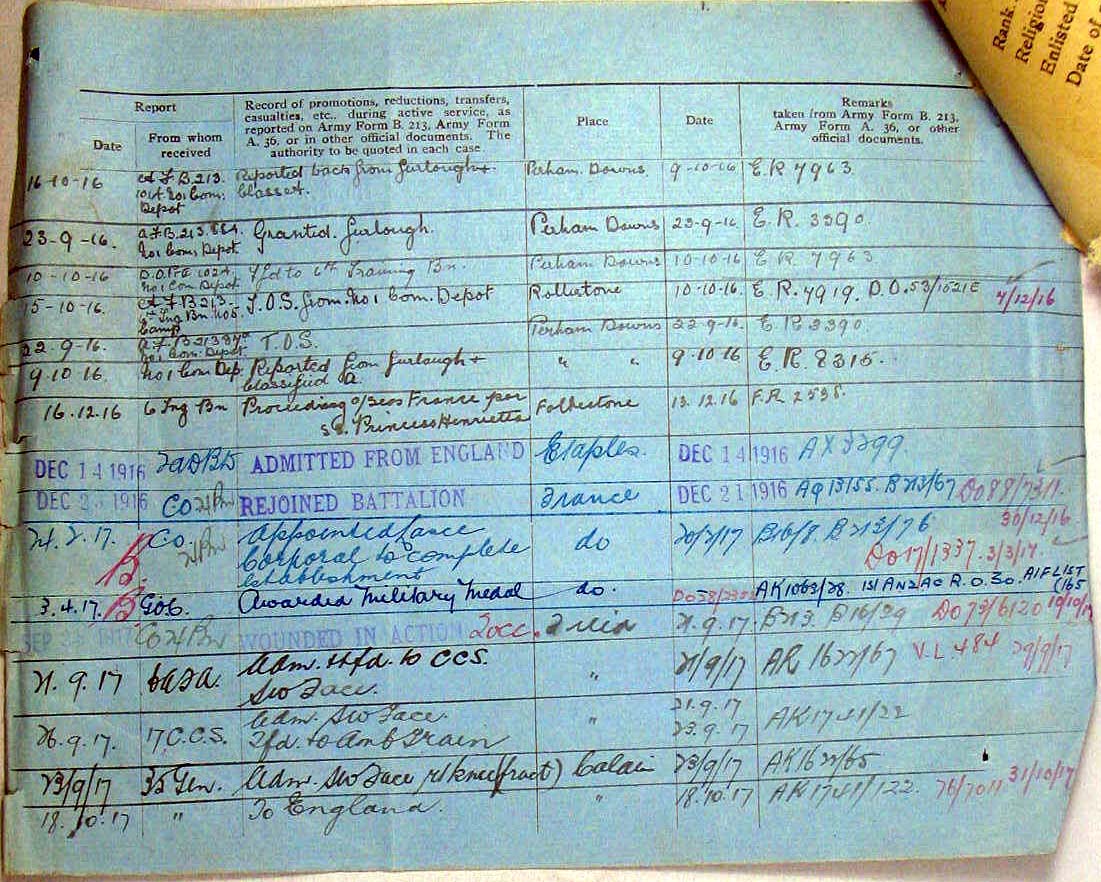 Rank
Religion
Enlisted
Date of
Report
Date
From whom received
Record of promotions, reductions, transfers, casualties, etc., during active service, as reported on Army Form B. 213, Army Form A. 36, or in other official documents. The authority to be quoted in each case
Place
Date
Remarks taken from Army Form B. 213, Army Form A. 36, or other official documents.
16-10-16 A F B.213. No1 Com. Depot Reported back from furlough + Class A. Perham. Downs. 9-10-16 E.R 7963
23-9-16. A.F.B.213. No1 Com. Depot Granted. furlough. Perham Downs 23-9-16 E.R. 3390.
10-10-16 No1 Com Depot Tfd to 6th Training Bn. Perham Downs 10-10-16 E R 7963
15-10-16. A F B 213- Tng Bn No5 Camp T.O.S. from. No 1 Com. Depot Rollestone 10-10-16. E.R. 7919. D.O.53/1021E 4/12/16
22-9-16. No1 Com. Depot T.O.S. Perham Downs 22-9-16. E R 3390.
9.10 16. No 1 Com Dep. Reported from furlough + classified A. " " 9.10 16 E.R. 8315.
16.12.16 6 Tng Bn Proceeding o/seas France per S.S. Princess Henrietta Folkestone 13.12.16 F.R 2535.
DEC 14 1916 ADMITTED FROM ENGLAND Etaples. DEC 14 1916 AX 3299
DEC 23 1916 CO REJOINED BATTALION France DEC 21 1916 AQ 13155. B213/67 DO88/731. 30/12/16
24.2.17. CO. Appointed Lance Corporal to complete establishment do 20/2/17 B213/76 DO17/1337. 3/3/17
3.4.17. B GOC. Awarded Military Medal do. AK1063/28. 1st ANZAC R.O.30. AIF LIST
SEP 1917 CO WOUNDED IN ACTION 2occ. Field 21.9.17 B213. DO73/6120 10/10/17
21.9.17 Adm. & tfd. to CCS. SW Face. " 21/9/17 AR 1622/67 V.L 484 29/9/17
26.9.17. 17 C.C.S. Adm. SW Face. Tfd. to Amb Train " 21.9.17 23.9.17 AK1741/22
23/9/17 35 Gen. Adm. SW Face r/knee (fract) Calais 23/9/17 AK1622/65
18.10.17 " To England. " 18.10.17 AK1741/122. 76/7011 31/10/17